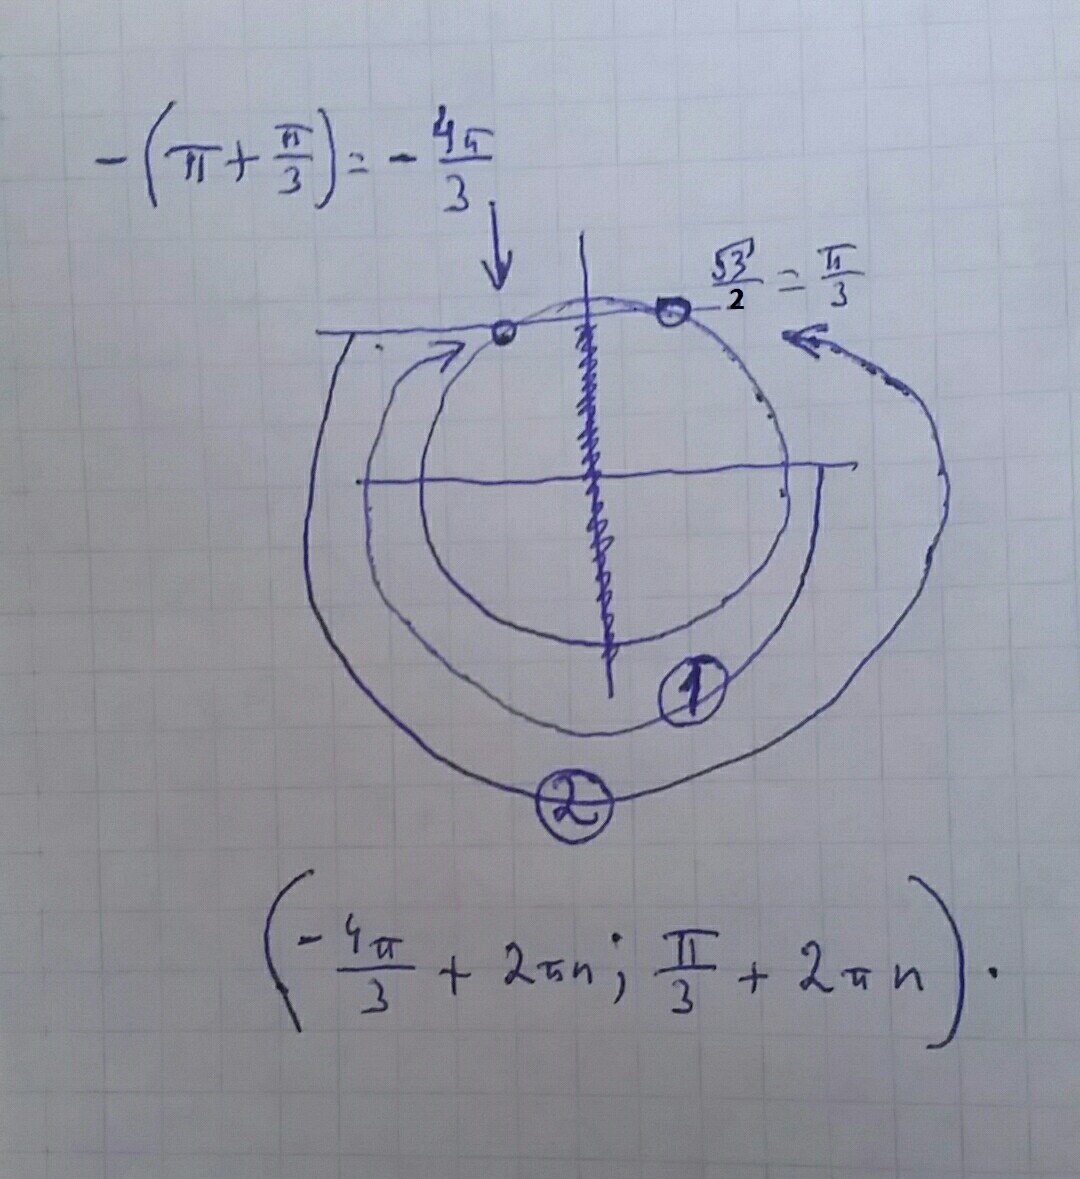 -(π + π/3) = - 4π/3
√3/2 = π/3
1
2
(- 4π/3 + 2πn; π/3 + 2πn).